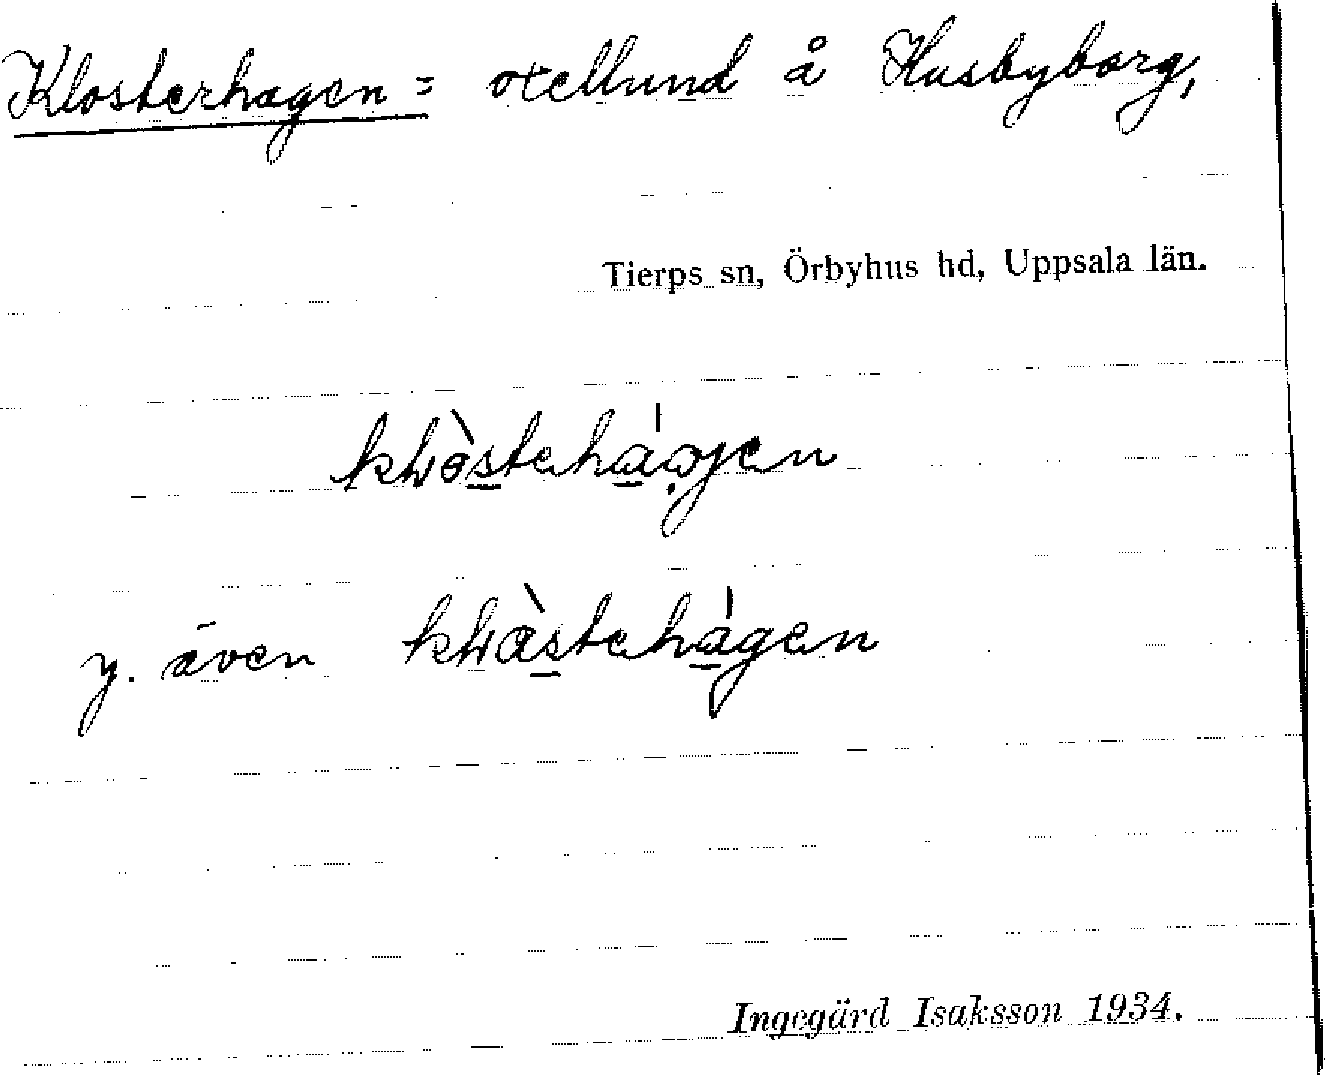 Klosterhagen = oxellund å Husbyborg,
Tierps sn, Örbyhus hd, Uppsala län.
y. även
Ingegärd Isaksson 1934.